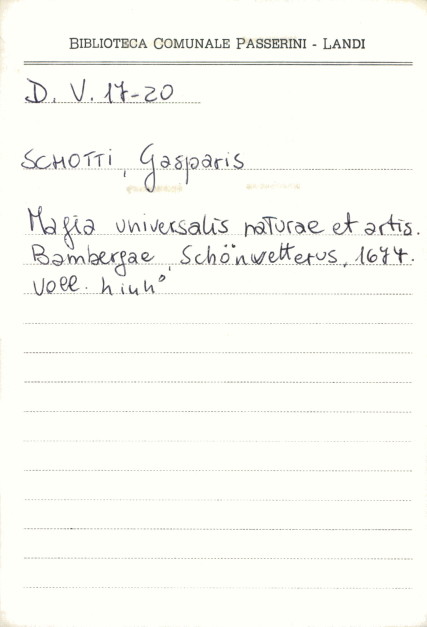 BIBLIOTECA COMUNALE PASSERINI - LANDI
D. V. 17-20
SCHOTTI, Gasparis
Magia universalis naturae et artis.
Bambergae, Schönwetterus, 1677.
Voll.